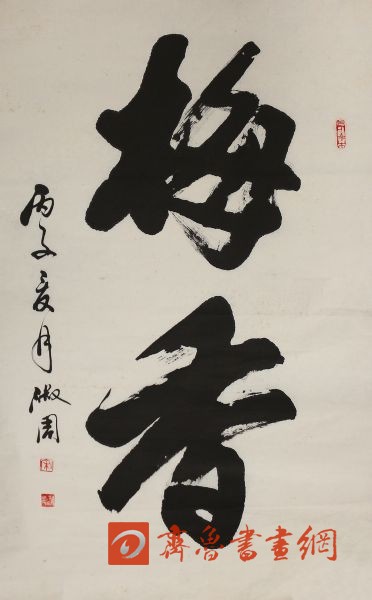 梅香
丙子夏月俶周
齊魯書畫網